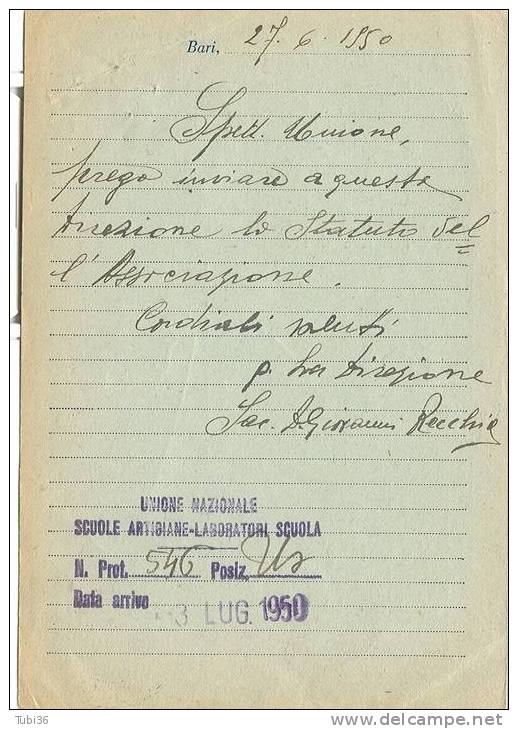 Bari, 27. 6. 1950
Spett. Unione,
prego inviare a questa
Direzione lo Statuto del
l'Associazione.
Cordiali saluti
p. La Direzione
Sac. D. Giovanni Recchia
UNIONE NAZIONALE
SCUOLE ARTIGIANE-LABORATORI SCUOLA
N. Prot. 546 Posiz.
Data arrivo -3 LUG. 1950
Tubi36
www.delcampe.net